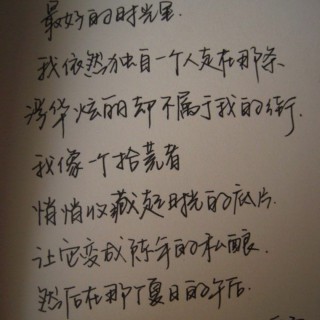 最好的时光里.
我依然独自一个人走在那条
浮华炫丽却不属于我的街.
我像一个拾荒者
悄悄收藏起时光的底片.
让它变成陈年的私酿.
然后在那个夏日的午后.